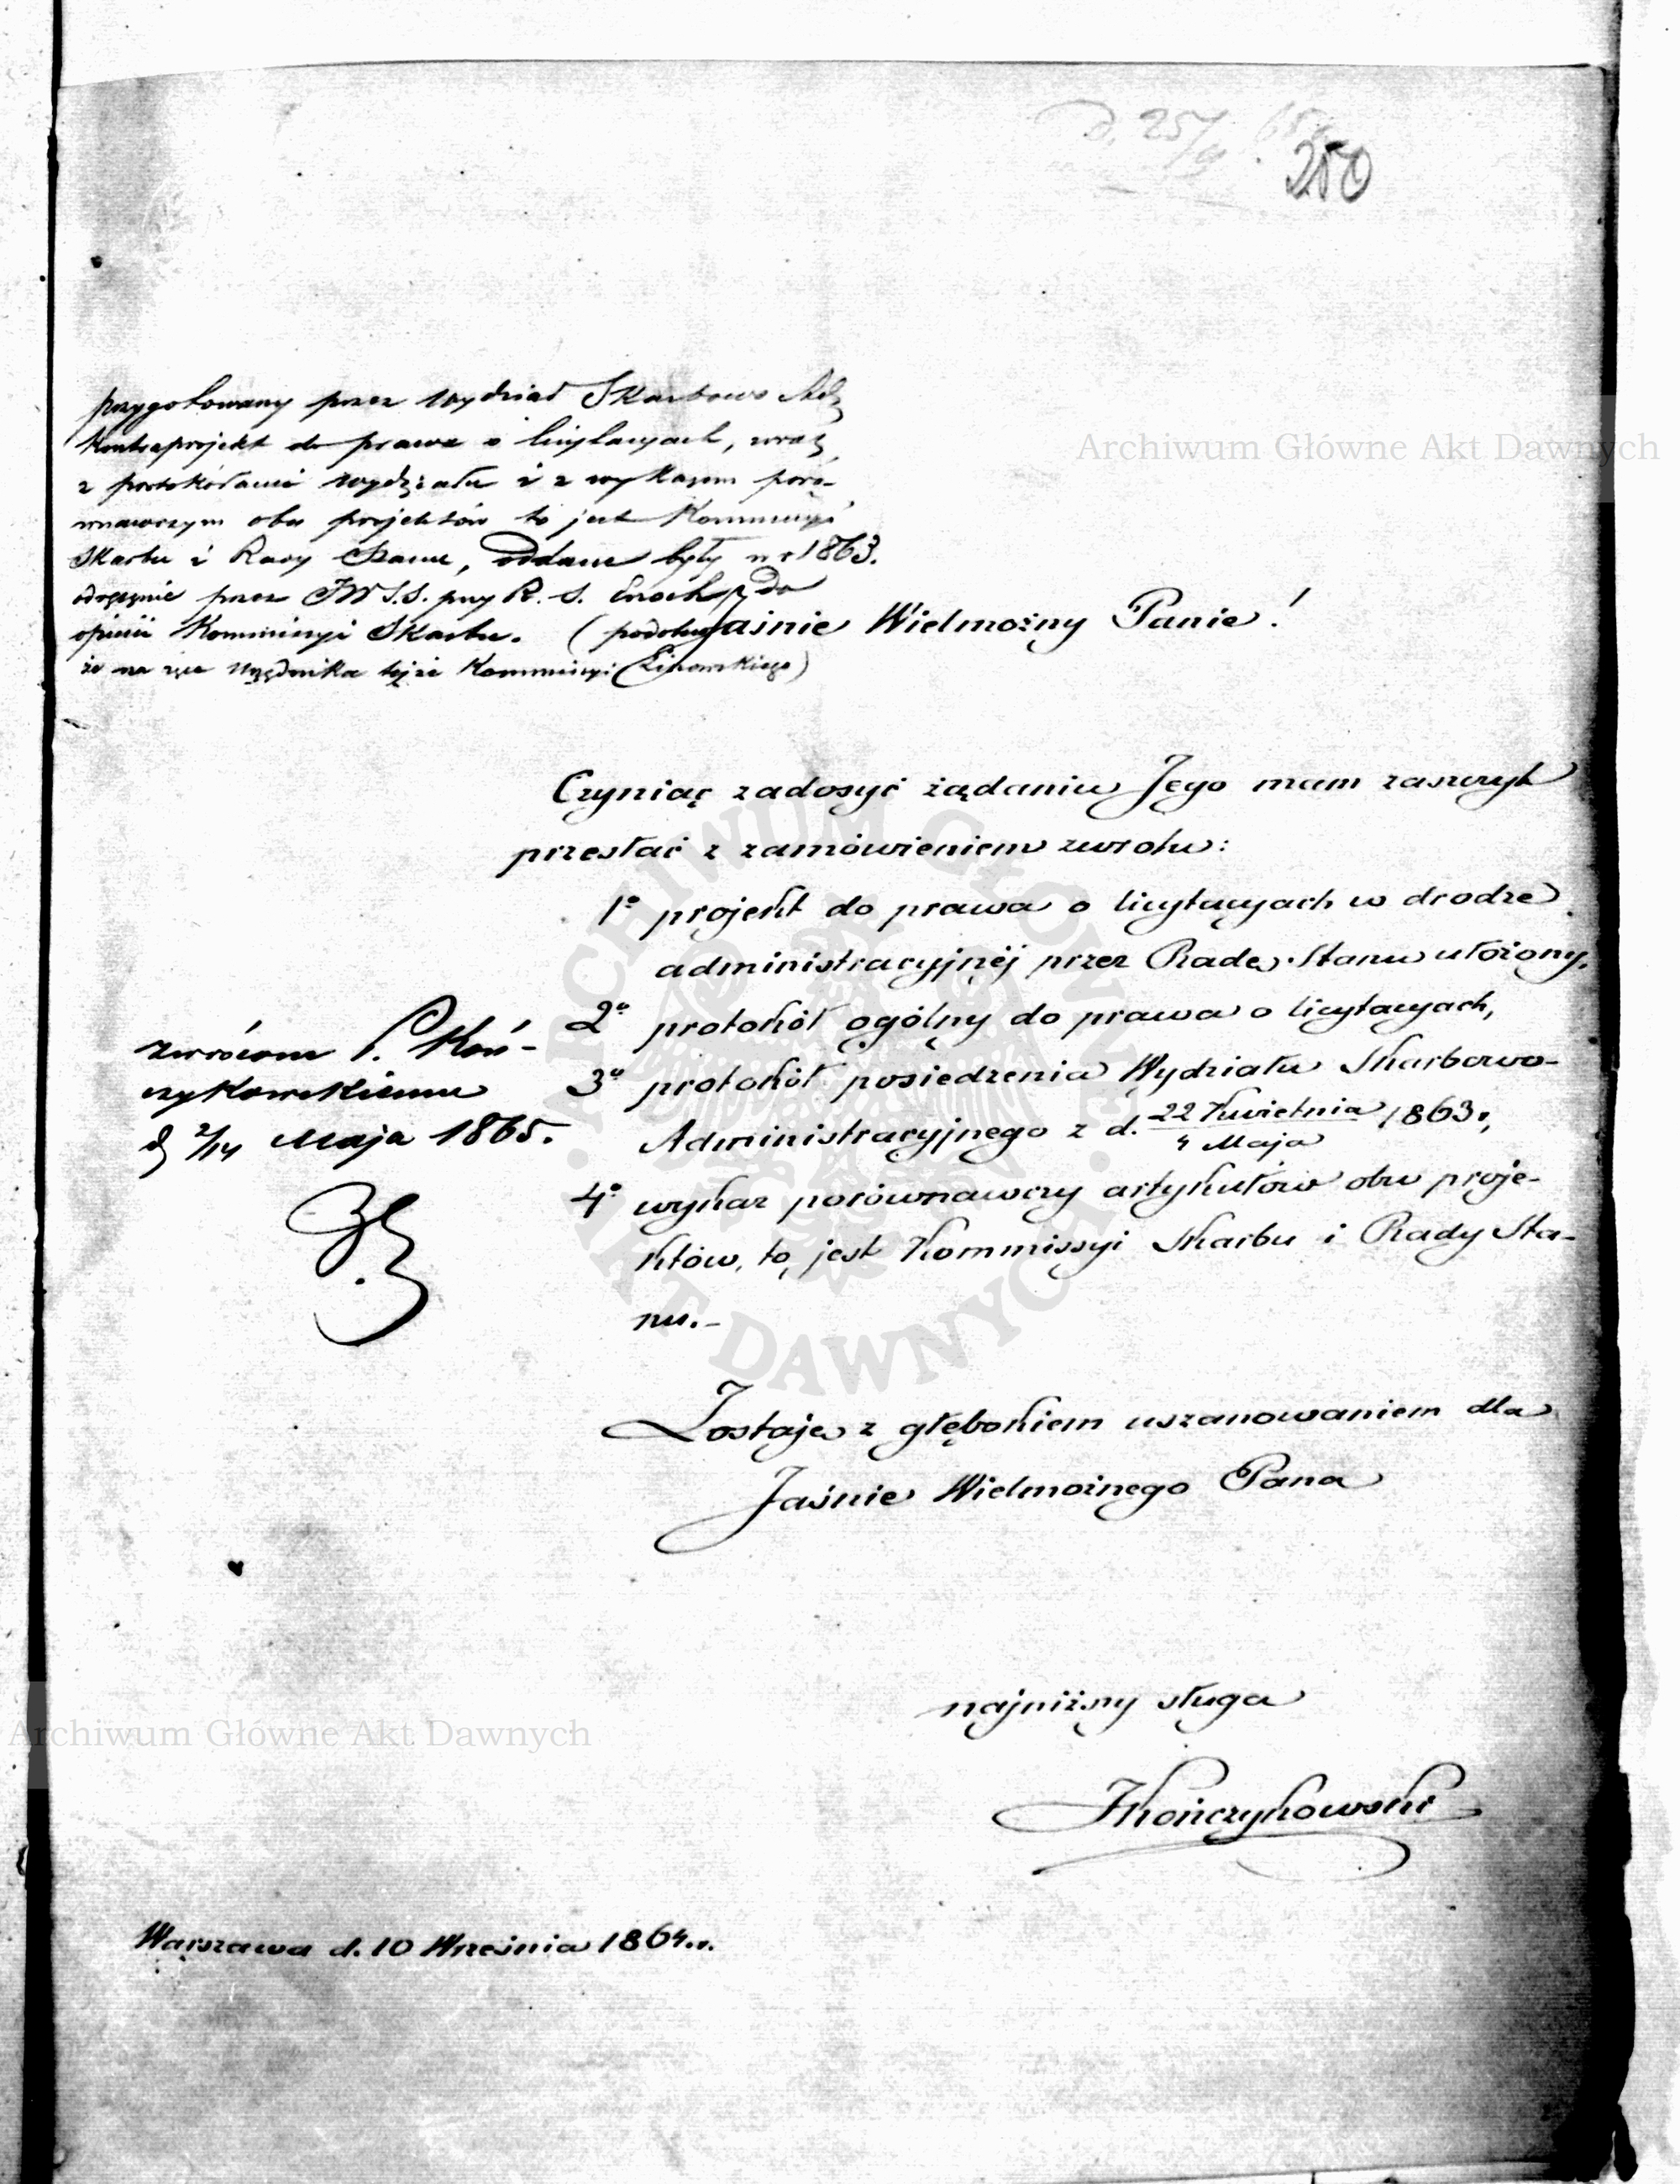 250
przygotowany przez wydział Skarbowo Adm
kontraprojekt do prawa o licytacyach, wraz
z protokółami wydziału i z wykazem poró-
wnawczym obu projektów to jest Kommissyi
Skarbu i Rady Stanu, oddane były w r 1863.
odręcznie przez JW S.S. przy R. S. Enoch do
opinii Kommissyi Skarbu. (podobno
że na ręce urzędnika tejże Kommissyi)
Jaśnie Wielmożny Panie!
Czyniąc zadosyć żądaniu Jego mam zaszczyt
przesłać z zamówieniem zwrotu:
1o projekt do prawa o licytacyach w drodze
administracyjnéj przez Radę Stanu ułożony,
2o protokół ogólny do prawa o licytacyach,
3o protokół posiedzenia Wydziału Skarbowo-
Administracyjnego z d. 22 Kwietnia / 4 Maja 1863 r,
4o wykaz porównawczy artykułów obu proje-
któw, to jest Kommissyi Skarbu i Rady Sta-
nu.-
zwrócone P. Koń-
czykowskiemu
d 2/14 Maja 1865.
Zostaję z głębokiem uszanowaniem dla
Jaśnie Wielmożnego Pana
najniższy sługa
JKończykowski
Warszawa d. 10 Września 1864 r.
Archiwum Główne Akt Dawnych
Archiwum Główne Akt Dawnych
ARCHIWUM GŁÓWNE
AKT DAWNYCH